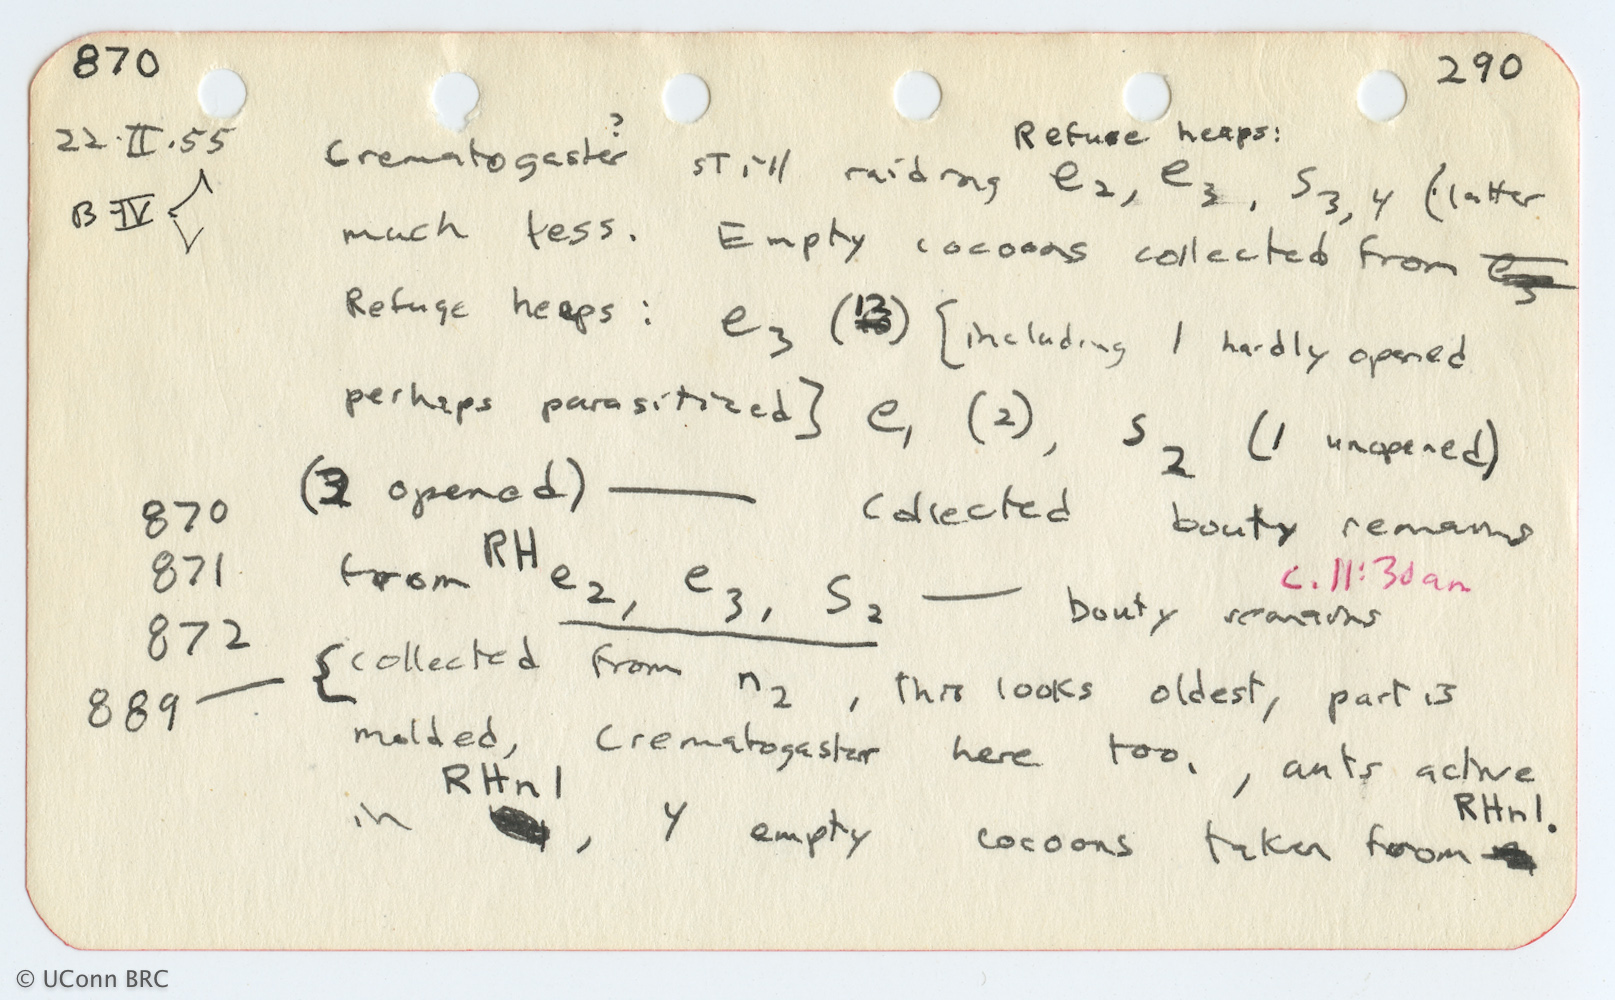 870 290
22.II.55
B IV
Refuse heaps:
Crematogaster? still raiding e2, e3, s3, y (latter
much less. Empty cocoons collected from
Refuge heaps: e3 (13) [including 1 hardly opened
perhaps parasitized] e1 (2), s2 (1 unopened)
(3 opened) — collected bouty remains
870
871 from RH e2, e3, s2 — bouty remains
c. 11:30am
872
889 — {collected from n2, this looks oldest, part is
molded, Crematogaster here too. , ants active
in RHn1, 4 empty cocoons taken from RHn1.
© UConn BRC